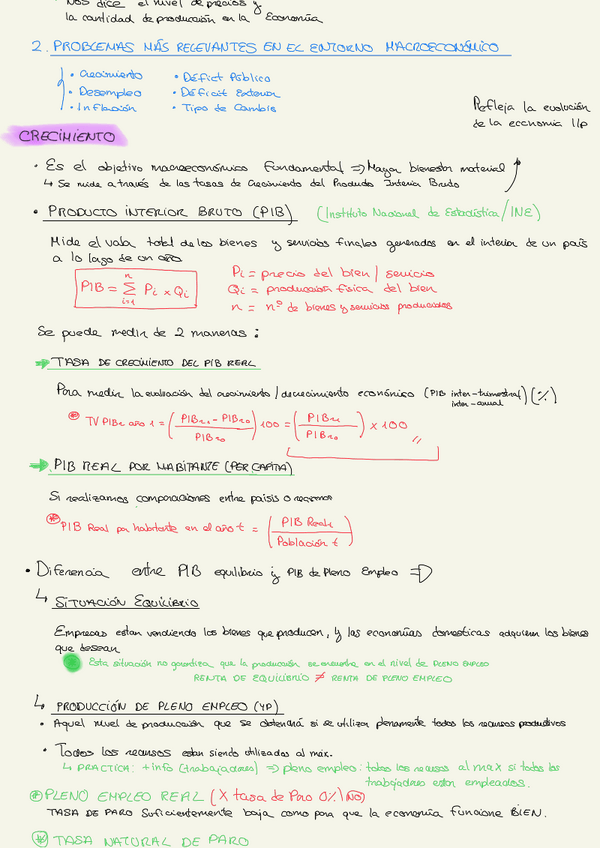 • Nos dice el nivel de precios y
la cantidad de producción en la Economía
2. PROBLEMAS MÁS RELEVANTES EN EL ENTORNO MACROECONÓMICO
• Crecimiento • Déficit Público
• Desempleo • Déficit Exterior
• Inflación • Tipo de Cambio
Refleja la evolución
de la economia l/p
CRECIMIENTO
• Es el objetivo macroeconómico Fundamental => Mayor bienestar material
↳ Se mide a través de las tasas de Crecimiento del Producto Interior Bruto
• PRODUCTO INTERIOR BRUTO (PIB) (Instituto Nacional de Estadística/INE)
Mide el valor total de los bienes y servicios finales generados en el interior de un país
a lo largo de un año
PIB = Σ Pi x Qi
n
i=1
Pi = precio del bien / servicio
Qi = producción física del bien
n = nº de bienes y servicios producidos
Se puede medir de 2 maneras:
→ TASA DE CRECIMIENTO DEL PIB REAL
Para medir la evaluación del crecimiento / decrecimiento económico (PIB inter-trimestral) (%)
inter-anual
TV PIBr año 1 = (PIBr1 - PIBr0 / PIBr0) 100 = (PIBr1 / PIBr0) x 100
→ PIB REAL POR HABITANTE (PER CAPITA)
Si realizamos comparaciones entre países o
PIB Real por habitante en el año t = (PIB Real t / Población t)
• Diferencia entre PIB equilibrio y PIB de Pleno Empleo =>
↳ SITUACIÓN EQUILIBRIO
Empresas estan vendiendo los bienes que producen, y las economías domesticas adquieren los bienes
que desean
Esta situación no garantiza que la producción se encuentre en el nivel de PLENO EMPLEO
RENTA DE EQUILIBRIO ≠ RENTA DE PLENO EMPLEO
↳ PRODUCCIÓN DE PLENO EMPLEO (YP)
• Aquel nivel de producción que se obtendrá si se utilizan plenamente todos los recursos productivos
• Todos los recursos estan siendo utilizados al máx.
↳ PRACTICA: + info (trabajadores) => pleno empleo: todos los recursos al max si todos los
trabajadores estan empleados.
PLENO EMPLEO REAL (X tasa de Paro 0% NO)
TASA DE PARO Suficientemente baja como para que la economía funcione BIEN.
TASA NATURAL DE PARO